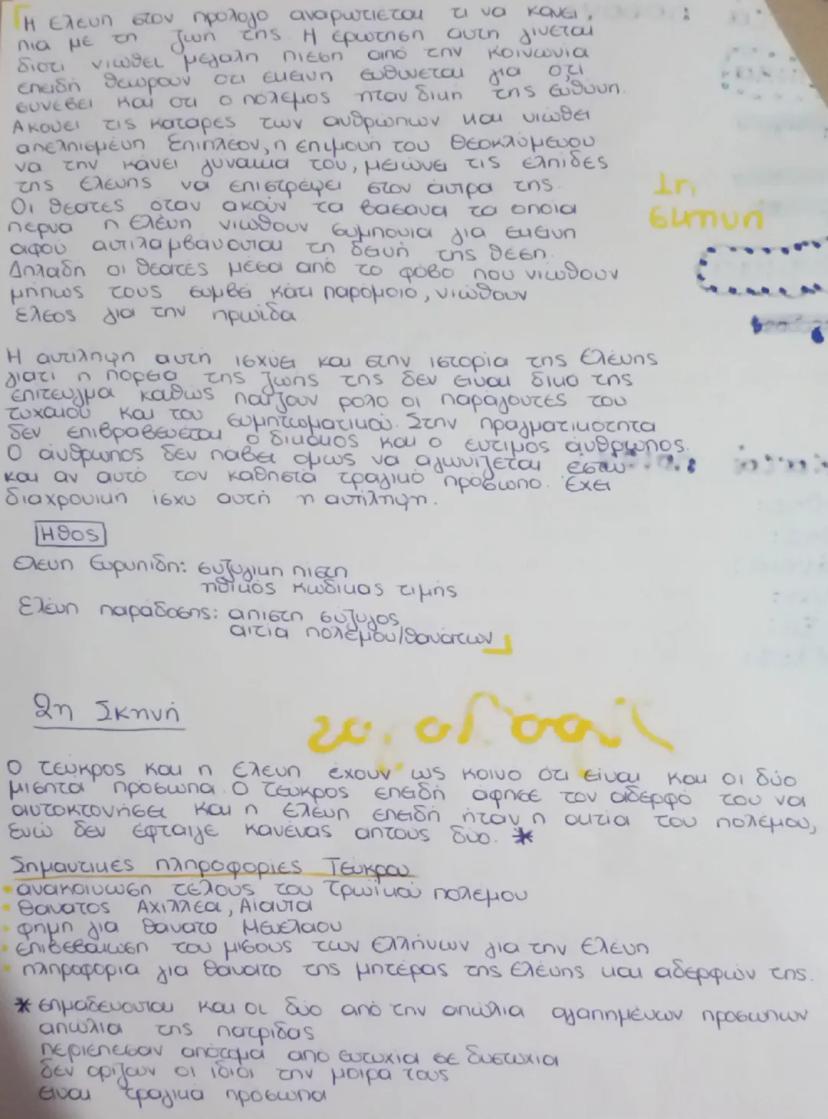 Η Ελενη στον πρόλογο αναρωτιεται τι να κανει,
πια με τη ζωη της. Η ερωτηση αυτη γίνεται
διοτι νιωθει μεγαλη πιεση από την κοινωνια
επειδη θεωρουν οτι εκεινη ευθυνεται για ο,τι
συνεβει και οτι ο πόλεμος ηταν δικη της ευθυνη.
Ακουει τις καταρες των ανθρωπων και νιωθει
απελπισμενη. Επιπλέον, η επιμονη του Θεοκλύμενου
να την κανει γυναικα του, μειωνει τις ελπιδες
της Ελενης να επιστρεψει στον άντρα της.
Οι θεατες οταν ακουν τα βασανα τα οποια
περνα η Ελενη νιωθουν συμπονια για εκεινη
αφου αντιλαμβανονται τη δεινή της θεση.
Δηλαδη οι θεατές μεσα από το φόβο που νιωθουν
μηπως τους συμβει κατι παρόμοιο, νιωθουν
έλεος για την ηρωιδα.
1η
σκηνη
Η αντιληψη αυτη ισχυει και στην ιστορια της Ελενης
γιατι η πορεια της ζωης της δεν ειναι δικο της
επιτευγμα καθως παιζουν ρολο οι παραγοντες του
τυχαιου και του συμπτωματικου. Στην πραγματικοτητα
δεν επιβραβευεται ο δικαιος και ο εντιμος άνθρωπος.
Ο άνθρωπος δεν παβει ομως να αγωνιζεται εστω
και αν αυτο τον καθηστα τραγικο προσωπο. Εχει
διαχρονικη ισχυ αυτη η αντιληψη.
Ηθος
Ελενη Ευριπιδη: συζυγικη πιστη
ηθικός κωδικας τιμής
Ελένη παράδοσης: απιστη σύζυγος
αιτία πολεμου/θανάτων
2η Σκηνή
Πρόλογος
Ο τευκρος και η Ελενη έχουν ως κοινο οτι είναι και οι δύο
μισητα πρόσωπα. Ο τευκρος επειδή αφησε τον αδερφό του να
αυτοκτονήσει και η Ελενη επειδή ήταν η αιτια του πολεμου,
ενω δεν εφταιγε κανένας απτους δυο. *
Σημαντικες πληροφορίες Τευκρου
• ανακοινωση τελους του τρωϊκου πολεμου
• θανατος Αχιλλέα, Αιαντα
• φημη για θανατο Μενελαου
• επιβεβαιωση του μισους των Ελλήνων για την Ελενη
• πληροφορια για θανατο της μητέρας της Ελένης και αδερφών της.
* σημαδευονται και οι δυο από την απωλια αγαπημένων προσωπων
απωλια της πατριδας
περιεπεσαν αποτομα από ευτυχια σε δυστυχια
δεν οριζουν οι ιδιοι την μοιρα τους
ειναι τραγικα προσωπα